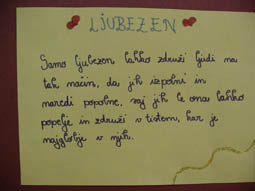 LJUBEZEN
Samo ljubezen lahko združi ljudi na
tak način, da jih izpolni in
naredi popolne, saj jih le ona lahko
popelje in združi v tistem, kar je
najgloblje v njih.